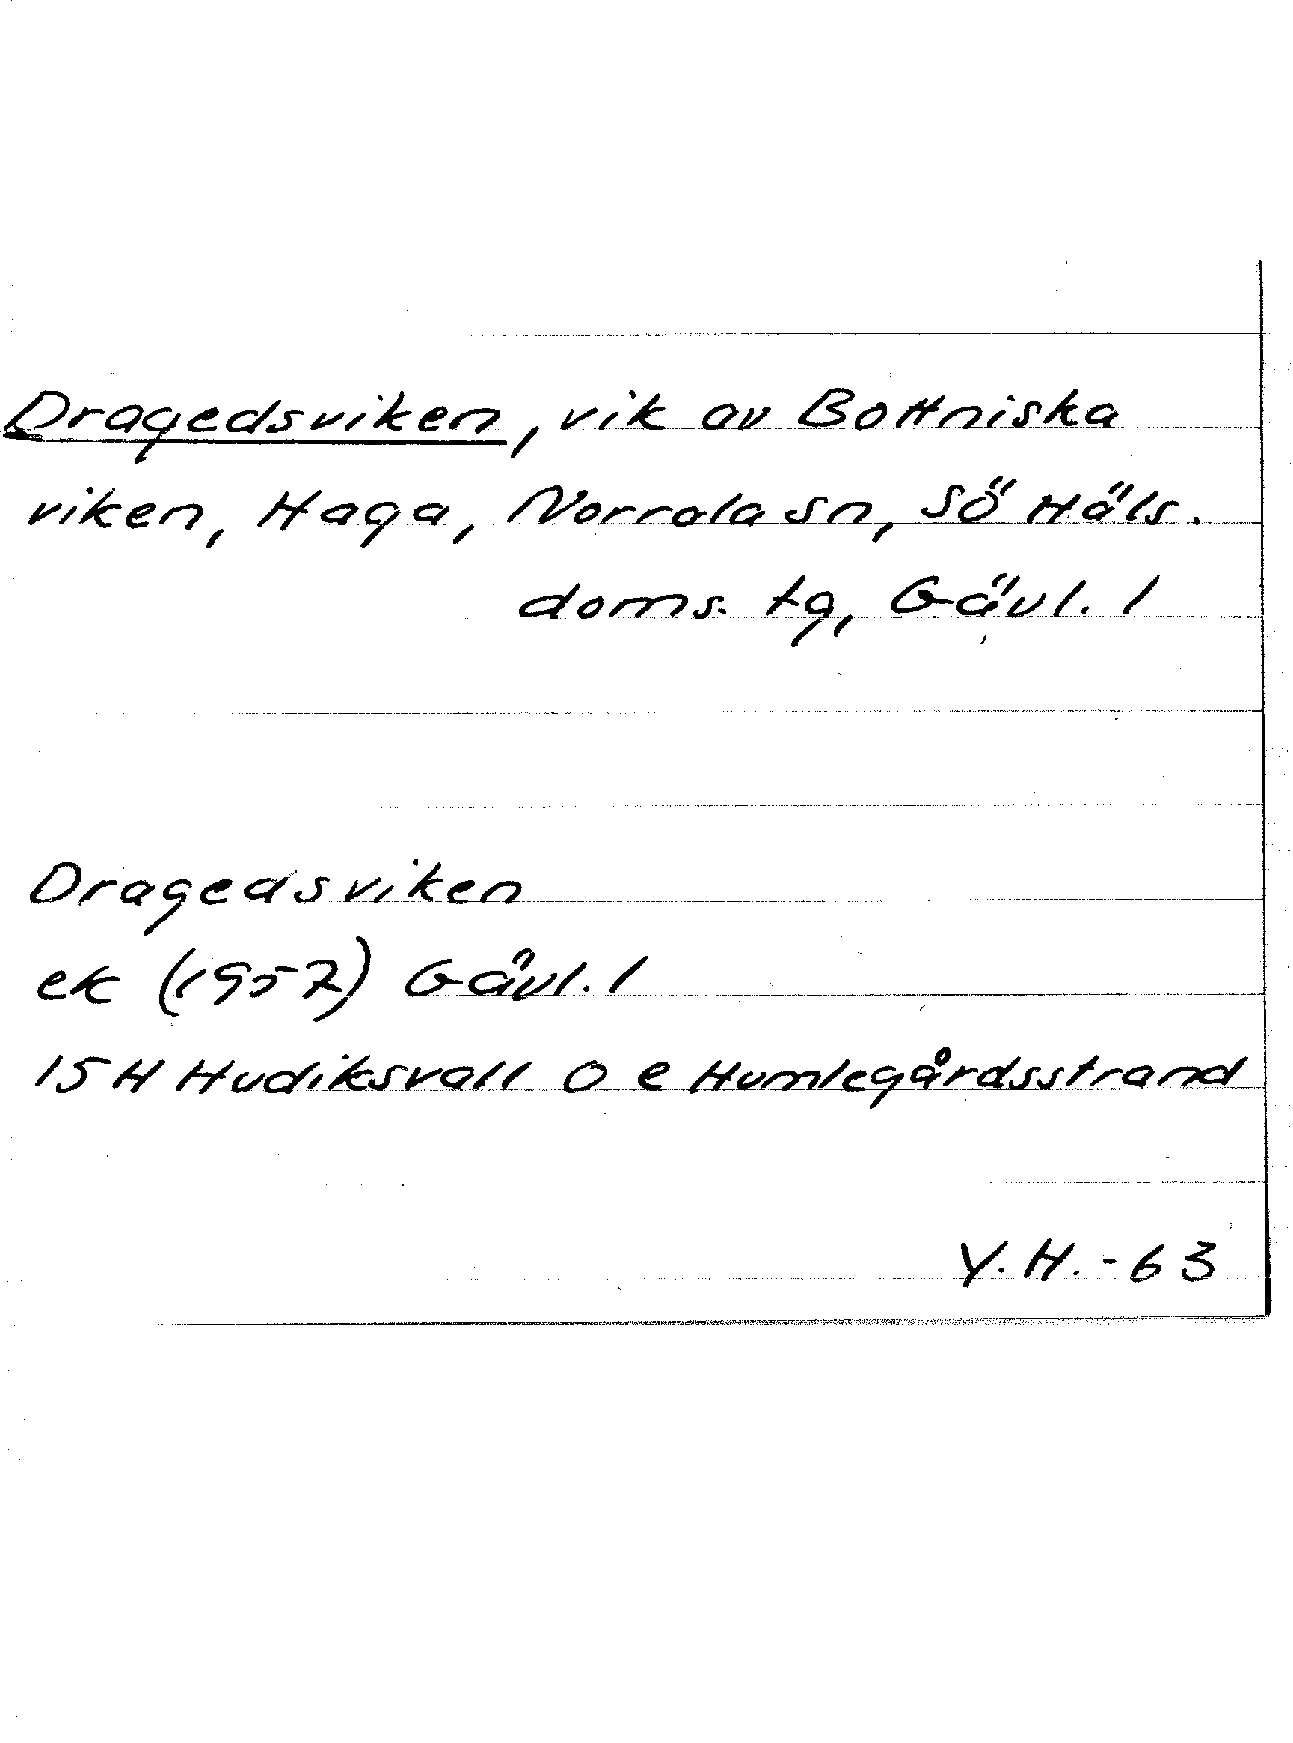 Dragedsviken, vik av Bottniska
viken, Haga, Norrala sn, SÖ Häls.
doms. tg, Gävl. l
Dragedsviken
ek (1957) Gävl. l
15H Hudiksvall O e Humlegårdsstrand
Y.H. -63